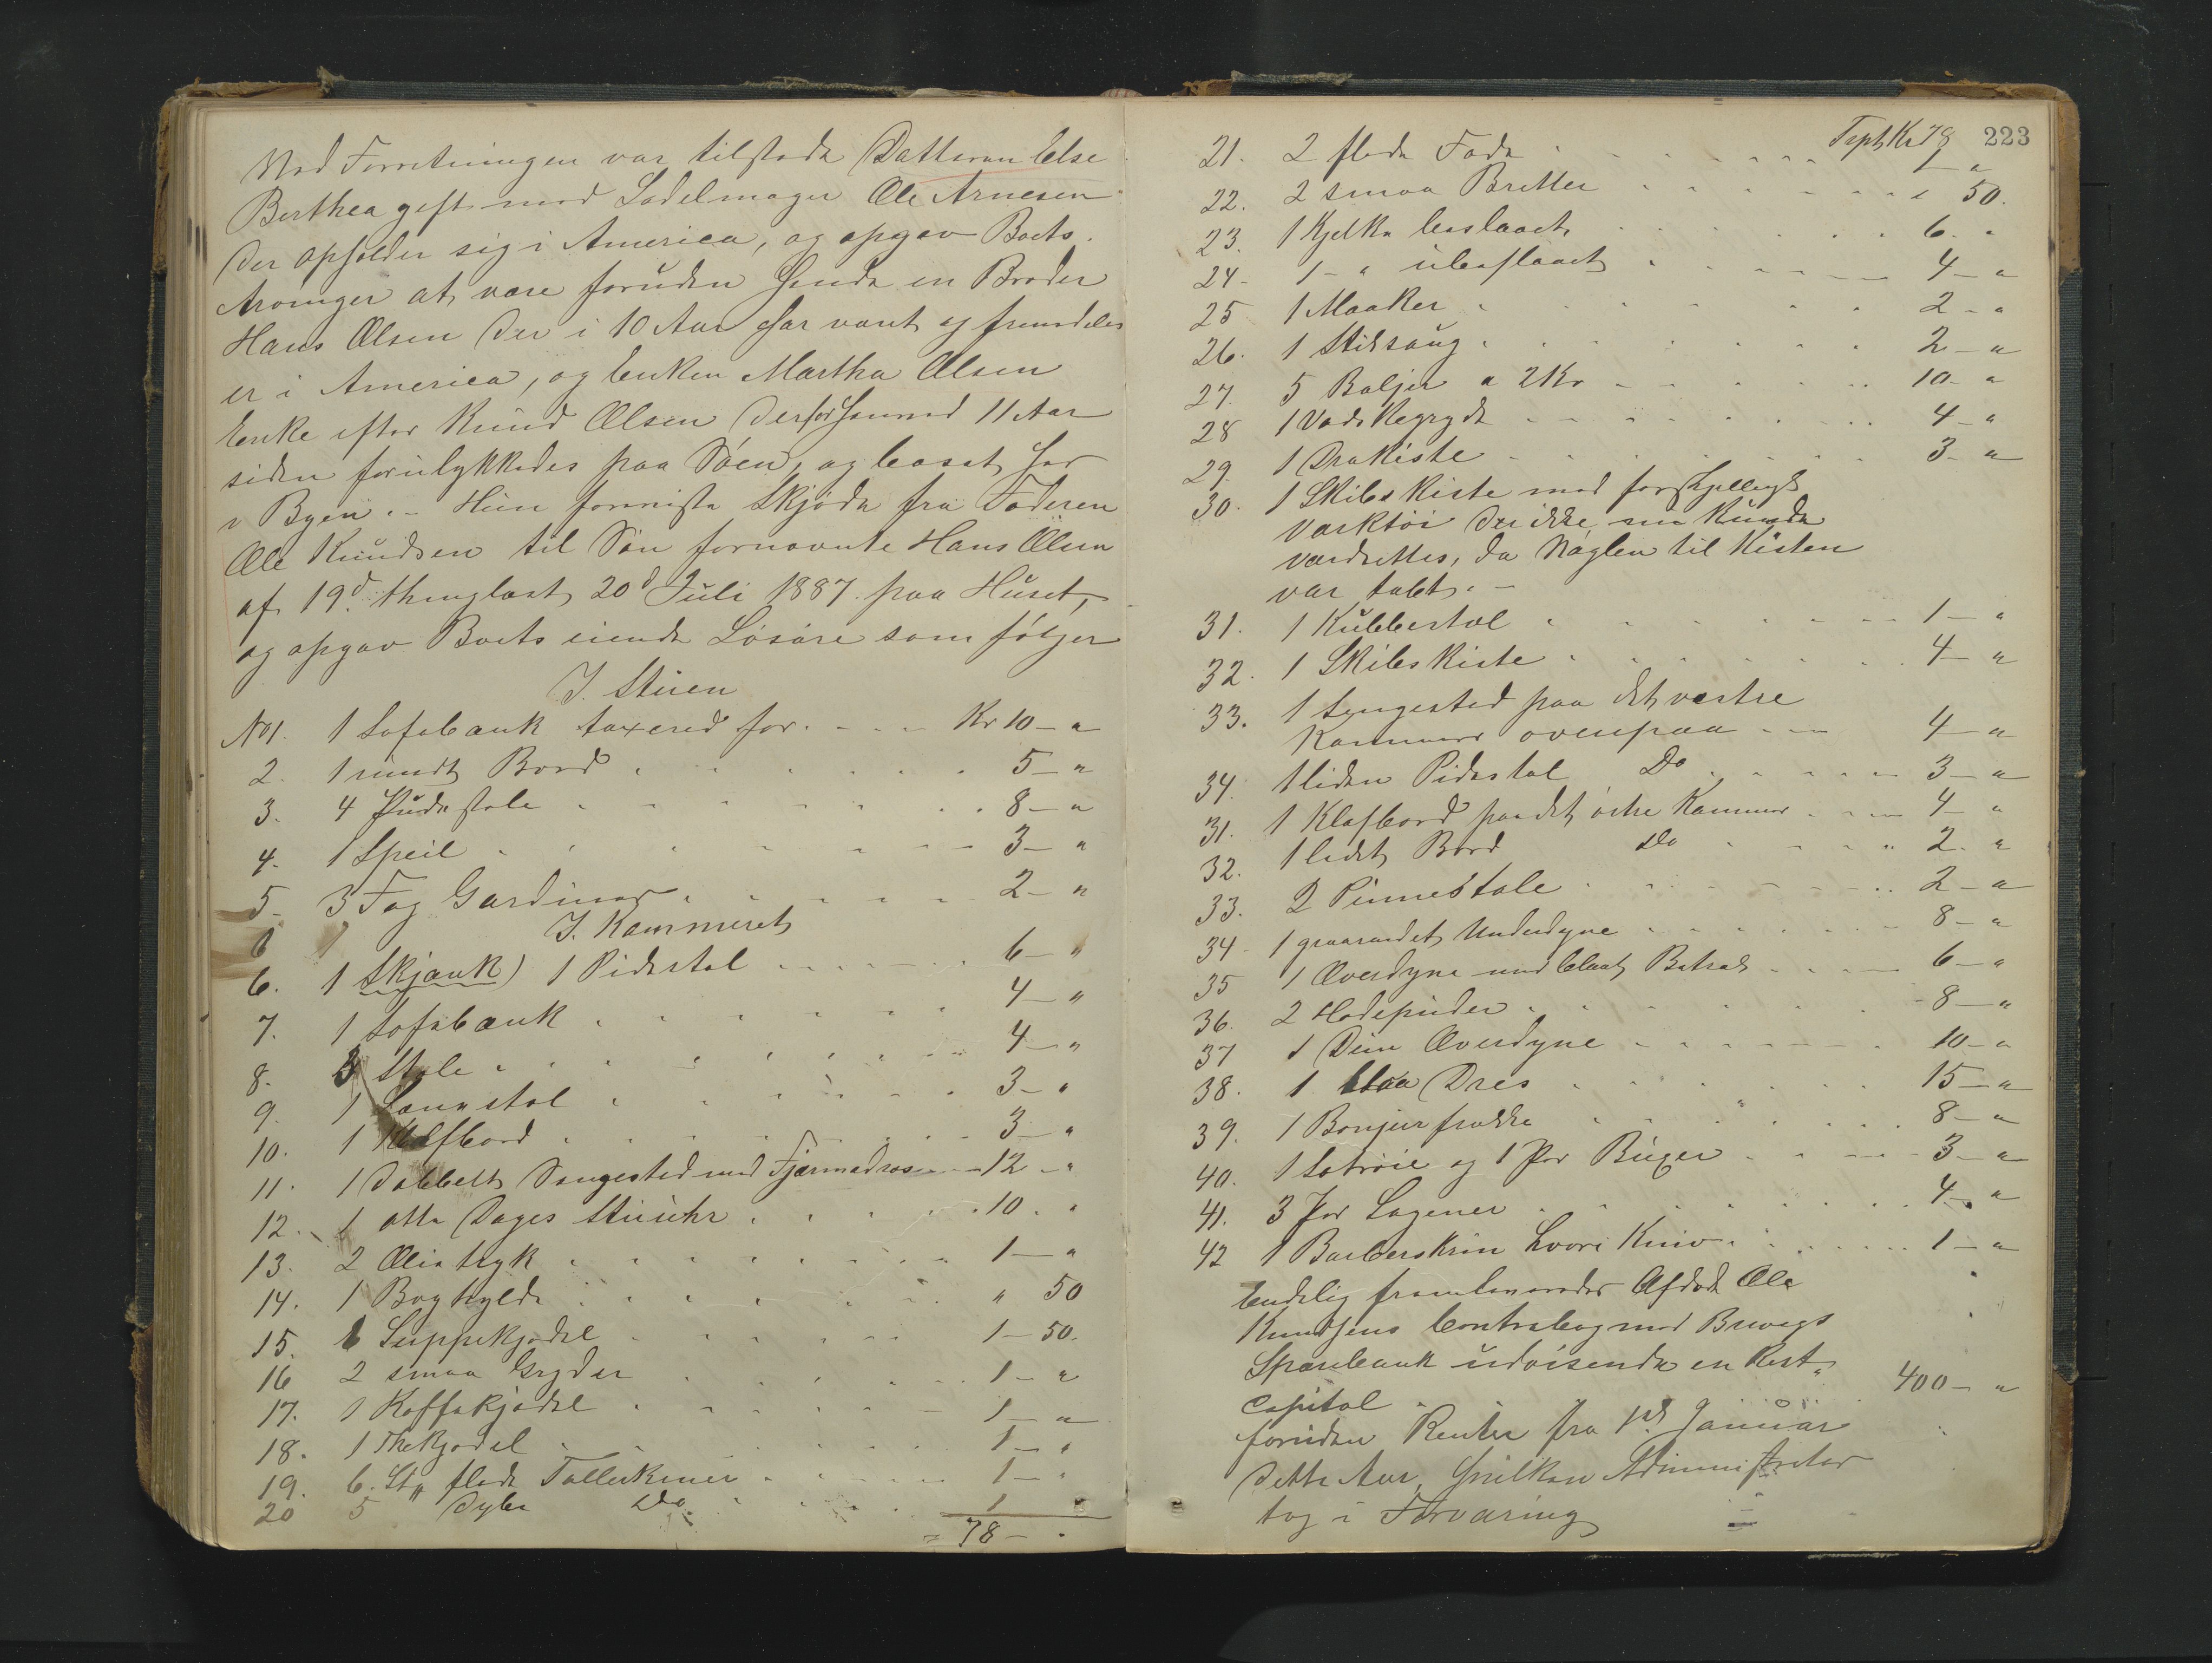 Ved Forretningen var tilstede Datteren Else
Berthea gift med Sadelmager Ole Arnesen
der opholder sig i America, og opgav Boets
Arvinger at være foruden hende en Broder
Hans Olsen der i 10 Aar har vært og fremdeles
er i America, og Enken Martha Olsen
Enke efter Knud Olsen der for henved 11 Aar
siden forulykkedes paa Søen, og bosat her
i Byen. - Hun foreviste Skjøde fra Faderen
Ole Knudsen til Søn fornævnte Hans Olsen
af 19d thinglæst 20d Juli 1887 paa Huset,
og opgav Boets eiende Løsøre som følger
I. Stuen
No 1. 1 Sofabænk taxered for . - - - Kr 10 - "
2. 1 rundt Bord 5 - "
3. 4 Pudestole 8 - "
4. 1 Speil 3 - "
5 - 3 Fag Gardiner 2 - "
I. Kammeret
6. 1 Skjænk) 1 Pidestal 6 - "
7. 1 Sofabænk 4 - "
8. 3 Stole 4 - "
9. 1 Lænestol 3 - "
10. 1 Klafbord 3 - "
11. 1 Dobbelt Sengested med Fjærmadras 12 - "
12. 1 otte Dages Stueuhr 10 . "
13. 2 Olietryk 1 - "
14. 1 Boghylde " 50
15. 1 Suppekjedel 1 - 50.
16 2 smaa Gryder 1 - "
17. 1 Kaffekjedel 1 - "
18. 1 Thekjedel 1 - "
19. 6. St " flade Tallerkener 1 - "
20 5 Dybe Do 1 "
= 78 - "
Trpt Kr 78 223
21. 2 flade Fade 1 - "
22. 2 smaa Bretter " 50.
23. 1 Kjelke beslaaet 6. "
24 - 1 - " ubeslaaet 4 - "
25 1 Maaker 2 - "
26. 1 Stiksaug 2 - "
27. 5 Baljer a 2 Kr 10 - "
28 1 Vadskegryde 4 - "
29. 1 Drakiste 3 - "
30. 1 Skibskiste med forskjelligt
Værktøi der ikke nu kunde
værdsettes, da Nøglen til Kisten
var tabt. -
31. 1 Kubbestol 1 - "
32. 1 Skibskiste 4 - "
33. 1 Sengested paa det vestre
Kammer ovenpaa 4 - "
34. 1 liden Pidestal Do 3 - "
31. 1 Klafbord paa det østre Kammer 4 - "
32. 1 lidet Bord Do 2 . "
33. 2 Pinnestole 2 - "
34 - 1 graarandet Underdyne 8 - "
35 1 Overdyne med blaat Betræk 6 - "
36. 2 Hodepuder 8 - "
37 1 Dun Overdyne 10 - "
38. 1 blaa Dres 15 - "
39. 1 Bonjurfrakke 8 - "
40. 1 Satrøie og 1 Par Buxer 3 - "
41. 3 Par Lagener 4 - "
42 1 Barberskrin hvori Kniv 1 - "
Endelig fremlevere­des Afdøde Ole
Knudsens Contrabog med Brevigs
Sparebank udvisende en Rest
Capital 400 - "
foruden Renter fra 1ste Januar
dette Aar, hvilken Administrator
tog i Forvaring